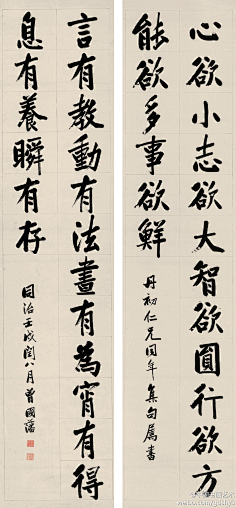 心欲小志欲大智欲圓行欲方
能欲多事欲鮮
丹初仁兄同年集句屬書
言有教動有法晝有為宵有得
息有養瞬有存
同治壬戌閏八月曾國藩